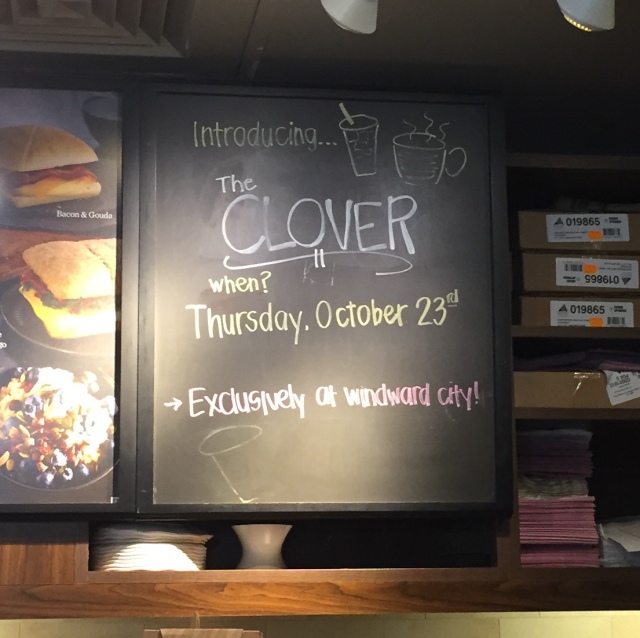 Introducing...
The
CLOVER
when?
Thursday, October 23rd
→ Exclusively at windward city!
Bacon & Gouda
019865
019865
019865